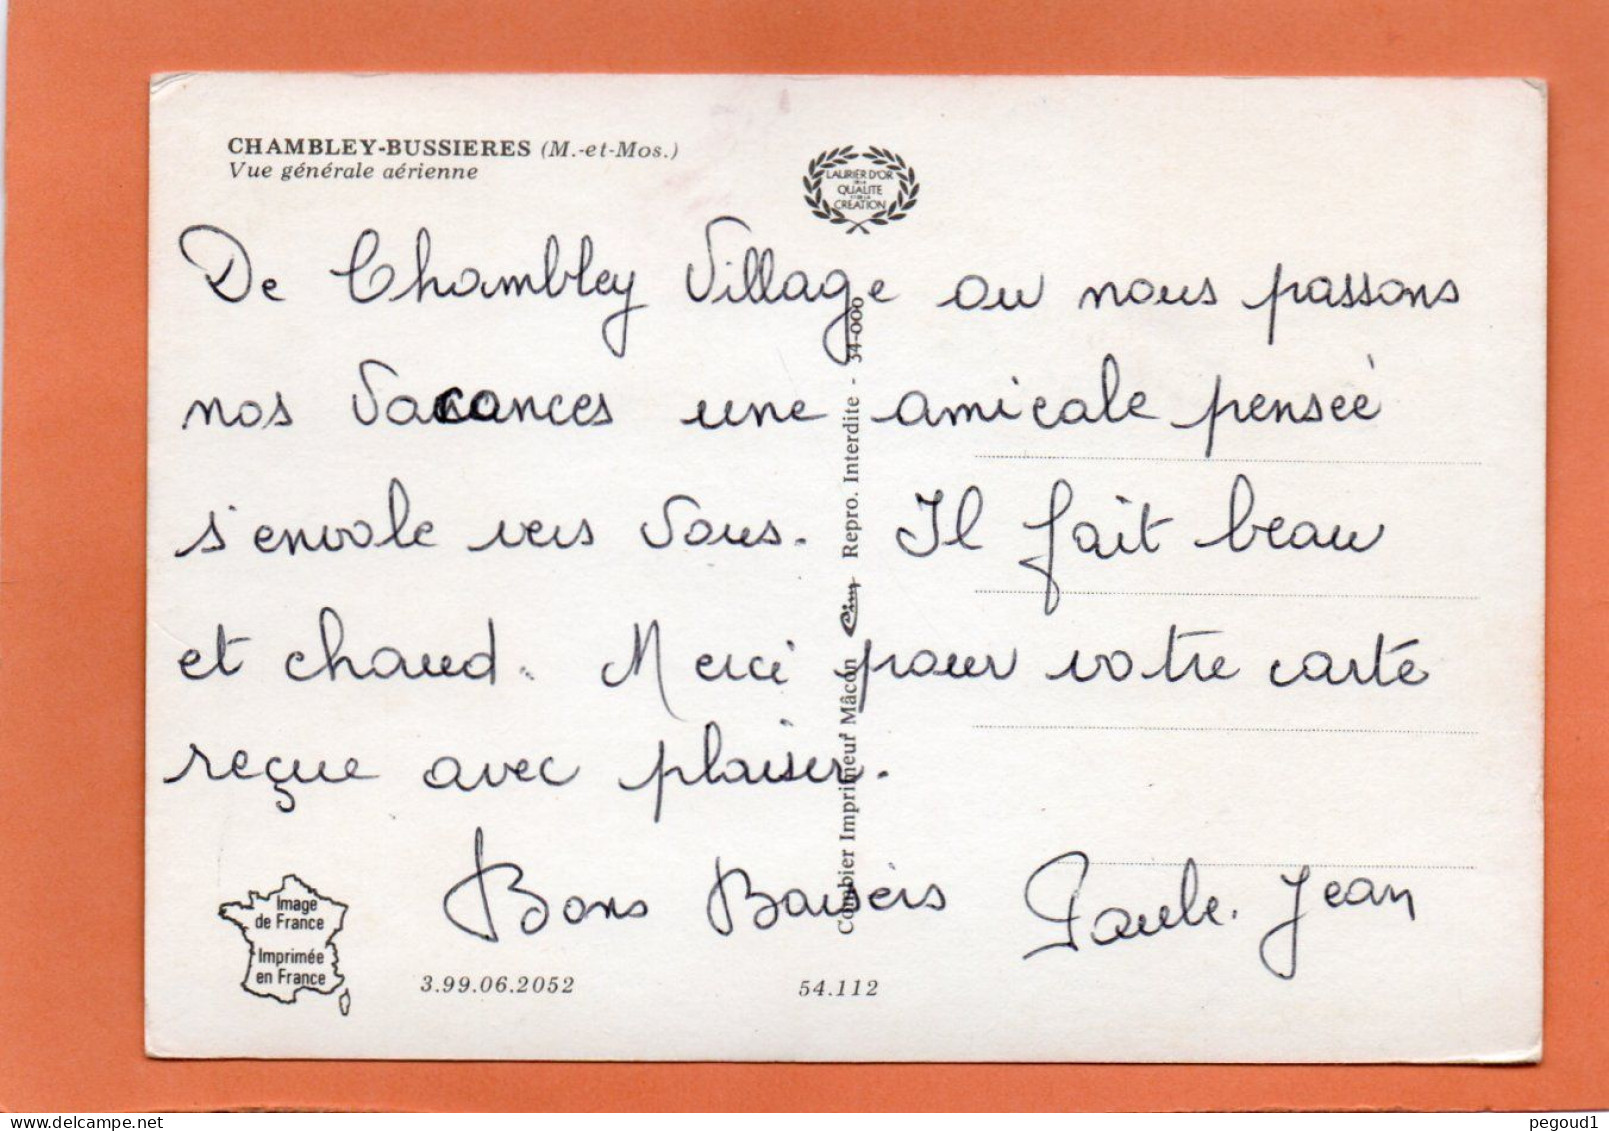 CHAMBLEY-BUSSIERES (M.-et-Mos.)
Vue générale aérienne
LAURIER D'OR
DE LA
QUALITE
ET DE LA
CREATION
De Chambley Village ou nous passons
nos Vacances une amicale pensée
s'envole vers Vous. Il fait beau
et chaud. Merci pour votre carte
reçue avec plaisir.
Bons Baisers Paule. Jean
Combier Imprimeur Mâcon Cim - Repro. Interdite - 34-000
Image
de France
Imprimée
en France
3.99.06.2052
54.112
www.delcampe.net
pegoud1